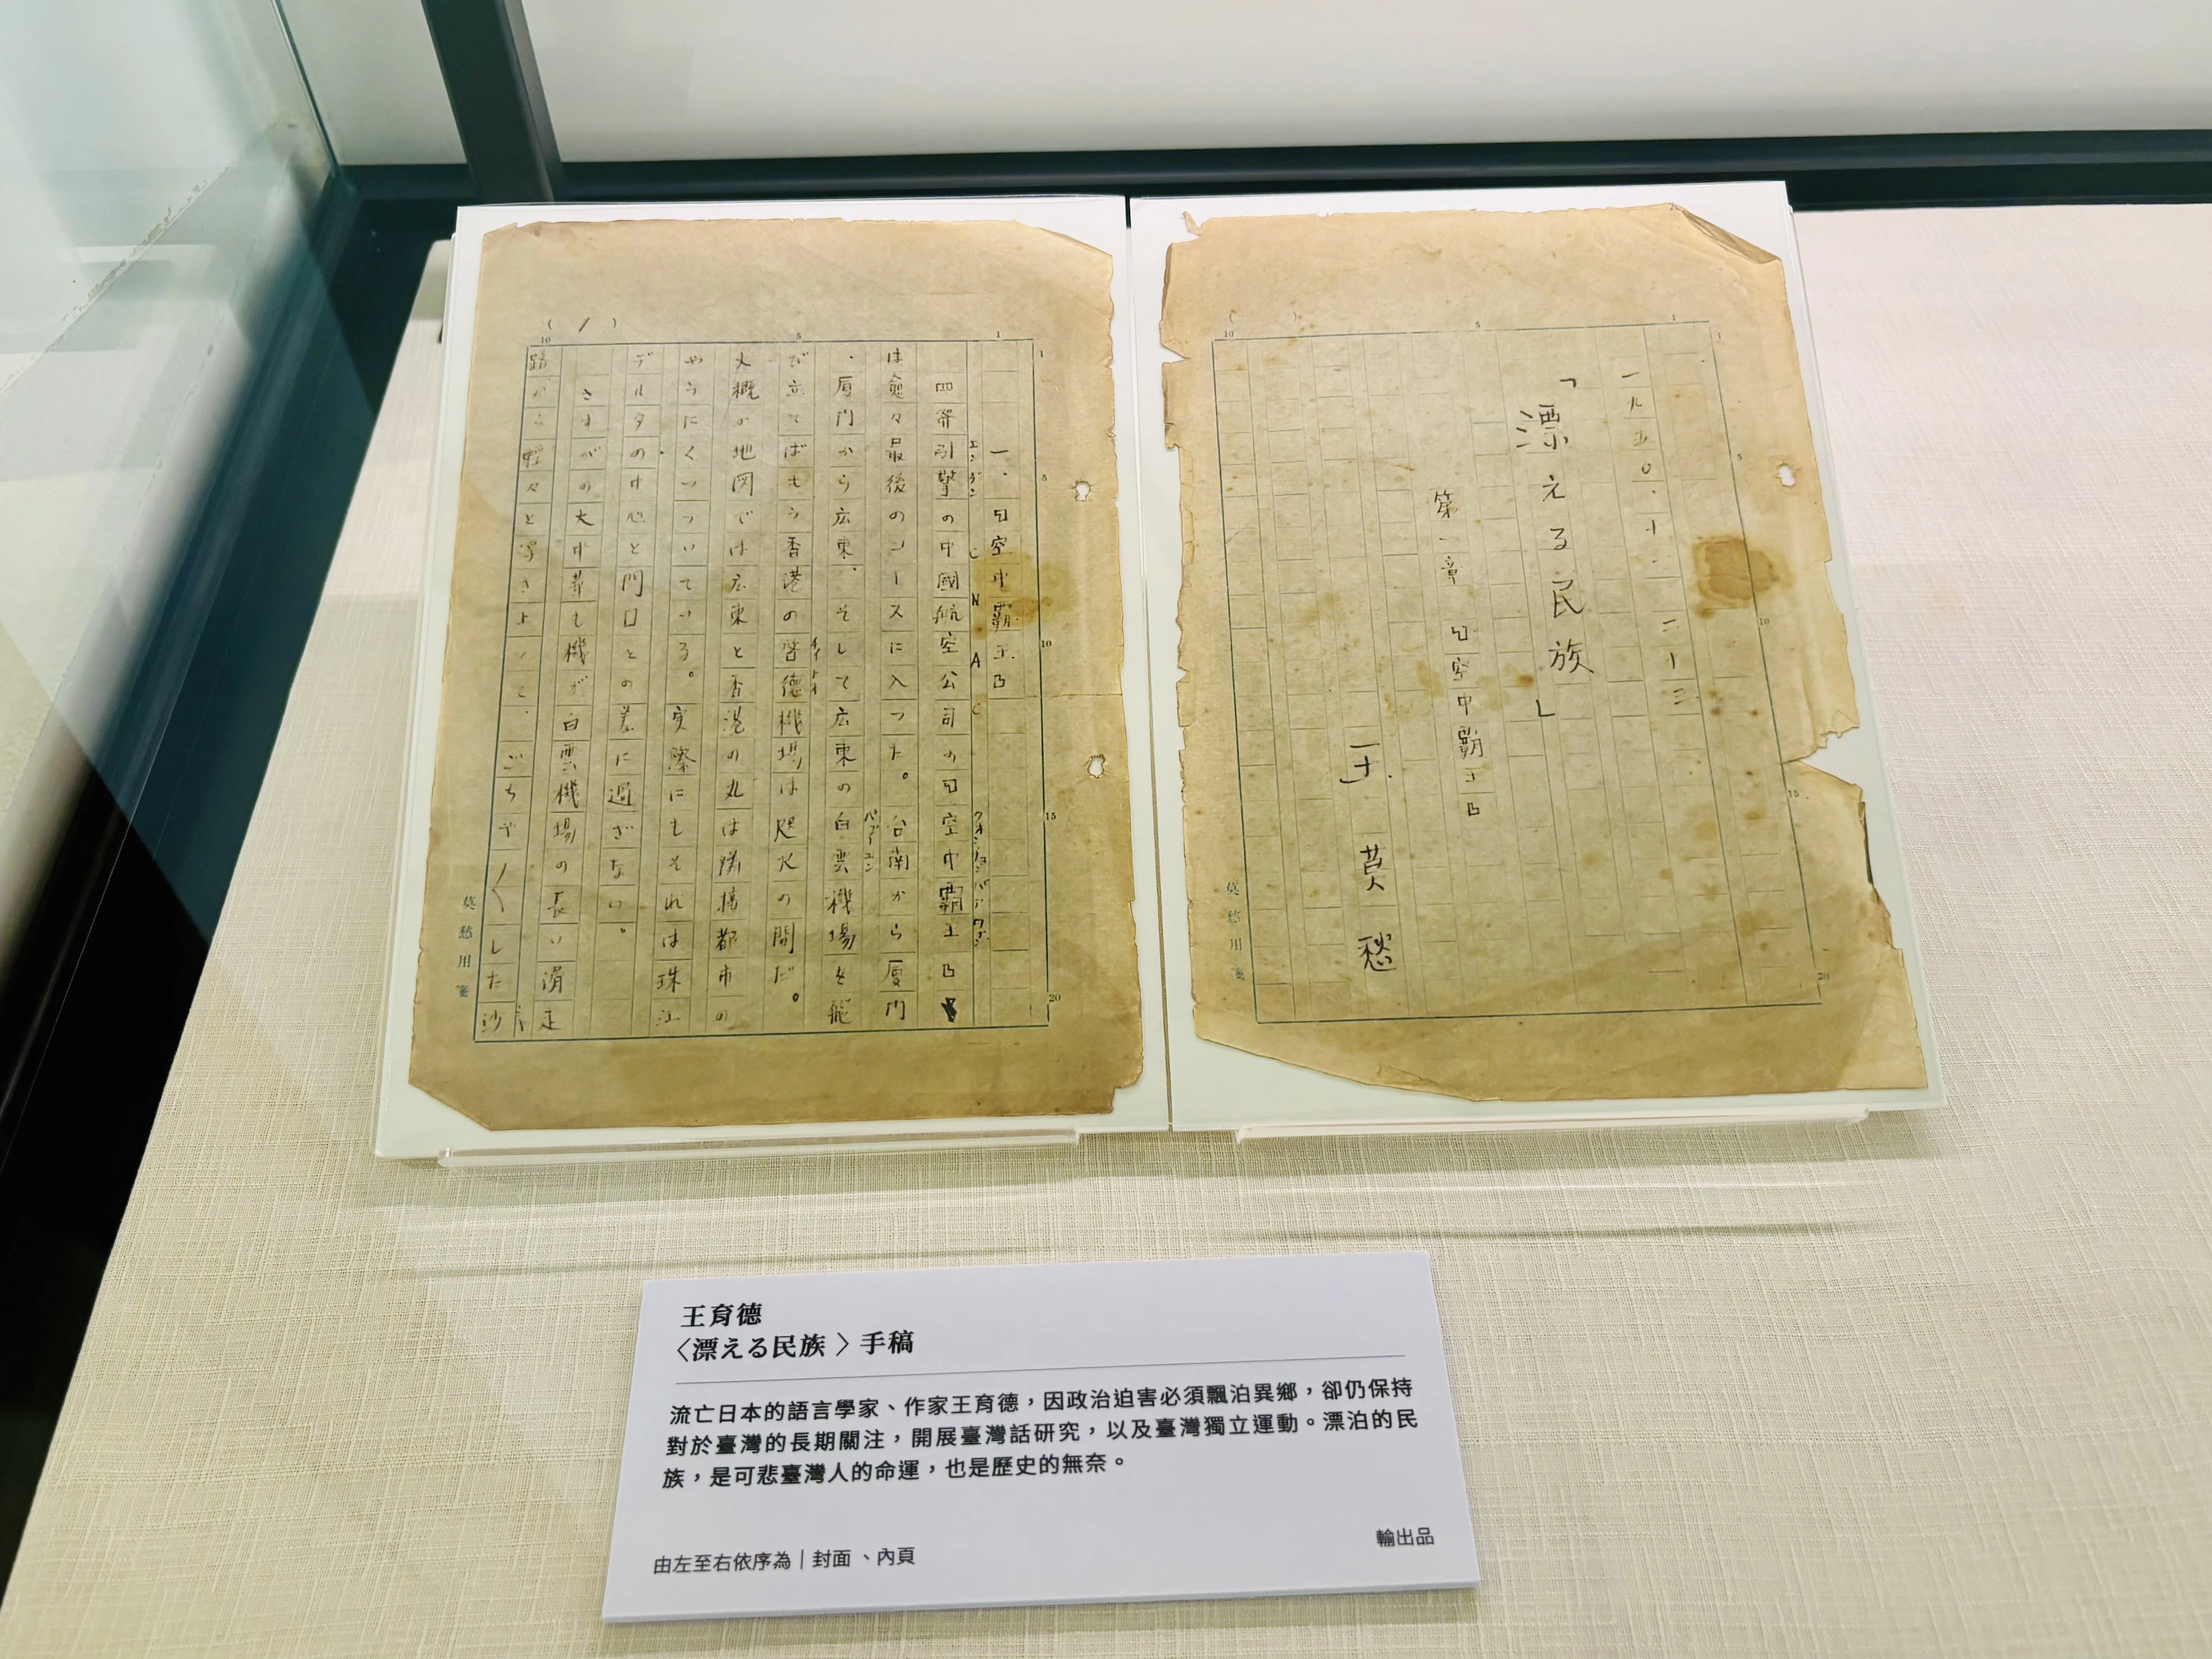 一九五〇.十一.二十三
「漂える民族」
第一章 『空中霸王』
王 莫愁
莫愁用箋
一、『空中霸王』
四發引擎の中國航空公司の『空中霸王』
エンヂン
CNAC
は愈々最後のコースに入つた。台南から厦門
、厦門から広東、そして広東の白雲機場を飛
び立てばもう香港の啓徳機場は咫尺の間だ。
大概の地図では広東と香港の丸は隣接都市の
やうにくつついている。実際にもそれは珠江
デルタの中心と門口との差に過ぎない。
さすがの大中華も機が白雲機場の長い滑走
路から軽々と浮き上つて、ごちや〱した沙
莫愁用箋
王育德
〈漂える民族〉手稿
流亡日本的語言學家、作家王育德，因政治迫害必須飄泊異鄉，卻仍保持
對於臺灣的長期關注，開展臺灣話研究，以及臺灣獨立運動。漂泊的民
族，是可悲臺灣人的命運，也是歷史的無奈。
輸出品
由左至右依序為｜封面、內頁